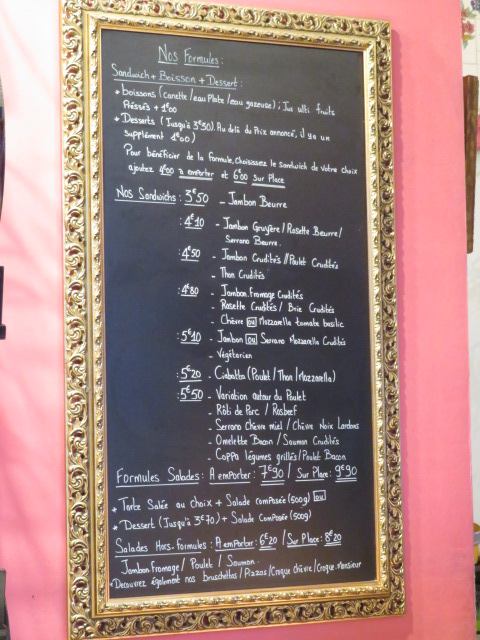 Nos Formules:
Sandwich + Boisson + Dessert:
* boissons (Canette / eau Plate / eau gazeuse) ; Jus ulti fruits
Pressés + 1€00
* Desserts (Jusqu'à 3€30). Au delà du Prix annoncé, il y a un
Supplément 1€00)
Pour bénéficier de la formule, Choisissez le Sandwich de Votre choix
ajoutez 4€00 à emporter et 6€00 Sur Place
Nos Sandwichs: 3€50 - Jambon Beurre
: 4€10 - Jambon Gruyère / Rosette Beurre /
Serrano Beurre.
: 4€50 - Jambon Crudités // Poulet Crudités
- Thon Crudités
: 4€80 - Jambon.fromage Crudités
- Rosette Crudités / Brie Crudités
- Chèvre ou Mozzarella tomate basilic
: 5€10 - Jambon ou Serrano Mozzarella Crudités
- Végétarien
: 5€20 - Ciabatta (Poulet / Thon / Mozzarella)
: 5€50 - Variation autour du Poulet
- Rôti de Porc / Rosbeef
- Serrano chèvre miel / Chèvre Noix Lardons
- Omelette Bacon / Saumon Crudités
- Coppa légumes grillés / Poulet Bacon
Formules Salades: A emporter: 7€90 / Sur Place: 9€90
* Tarte Salée au choix + Salade composée (500g) ou
* Dessert (Jusqu'à 3€70) + Salade Composée (500g)
Salades Hors-Formules : A emporter: 6€20 / Sur Place: 8€20
Jambon fromage / Poulet / Saumon.
* Decouvrez également nos bruschettas / Pizzas / Croque chèvre / Croque.Monsieur